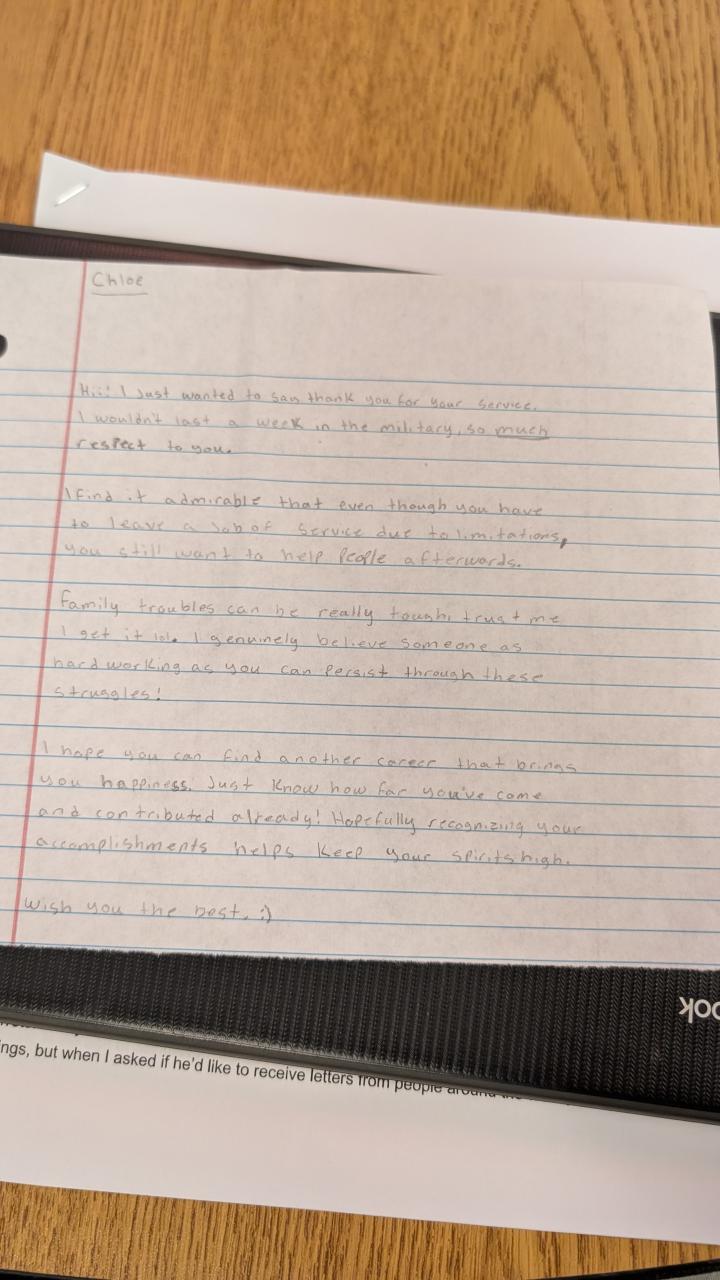 Chloe
Hii! I Just wanted to say thank you for your service.
I wouldn't last a week in the military, so much
respect to you.
I find it admirable that even though you have
to leave a Job of service due to limitations,
you still want to help People afterwards.
Family troubles can be really tough, trust me
I get it lol. I genuinely believe someone as
hardworking as you can Persist through these
struggles!
I hope you can find another career that brings
you happiness. Just know how far you've come
and contributed already! Hopefully recognizing your
accomplishments helps keep your spirits high.
Wish you the best. :)
ook
ings, but when I asked if he'd like to receive letters from people around